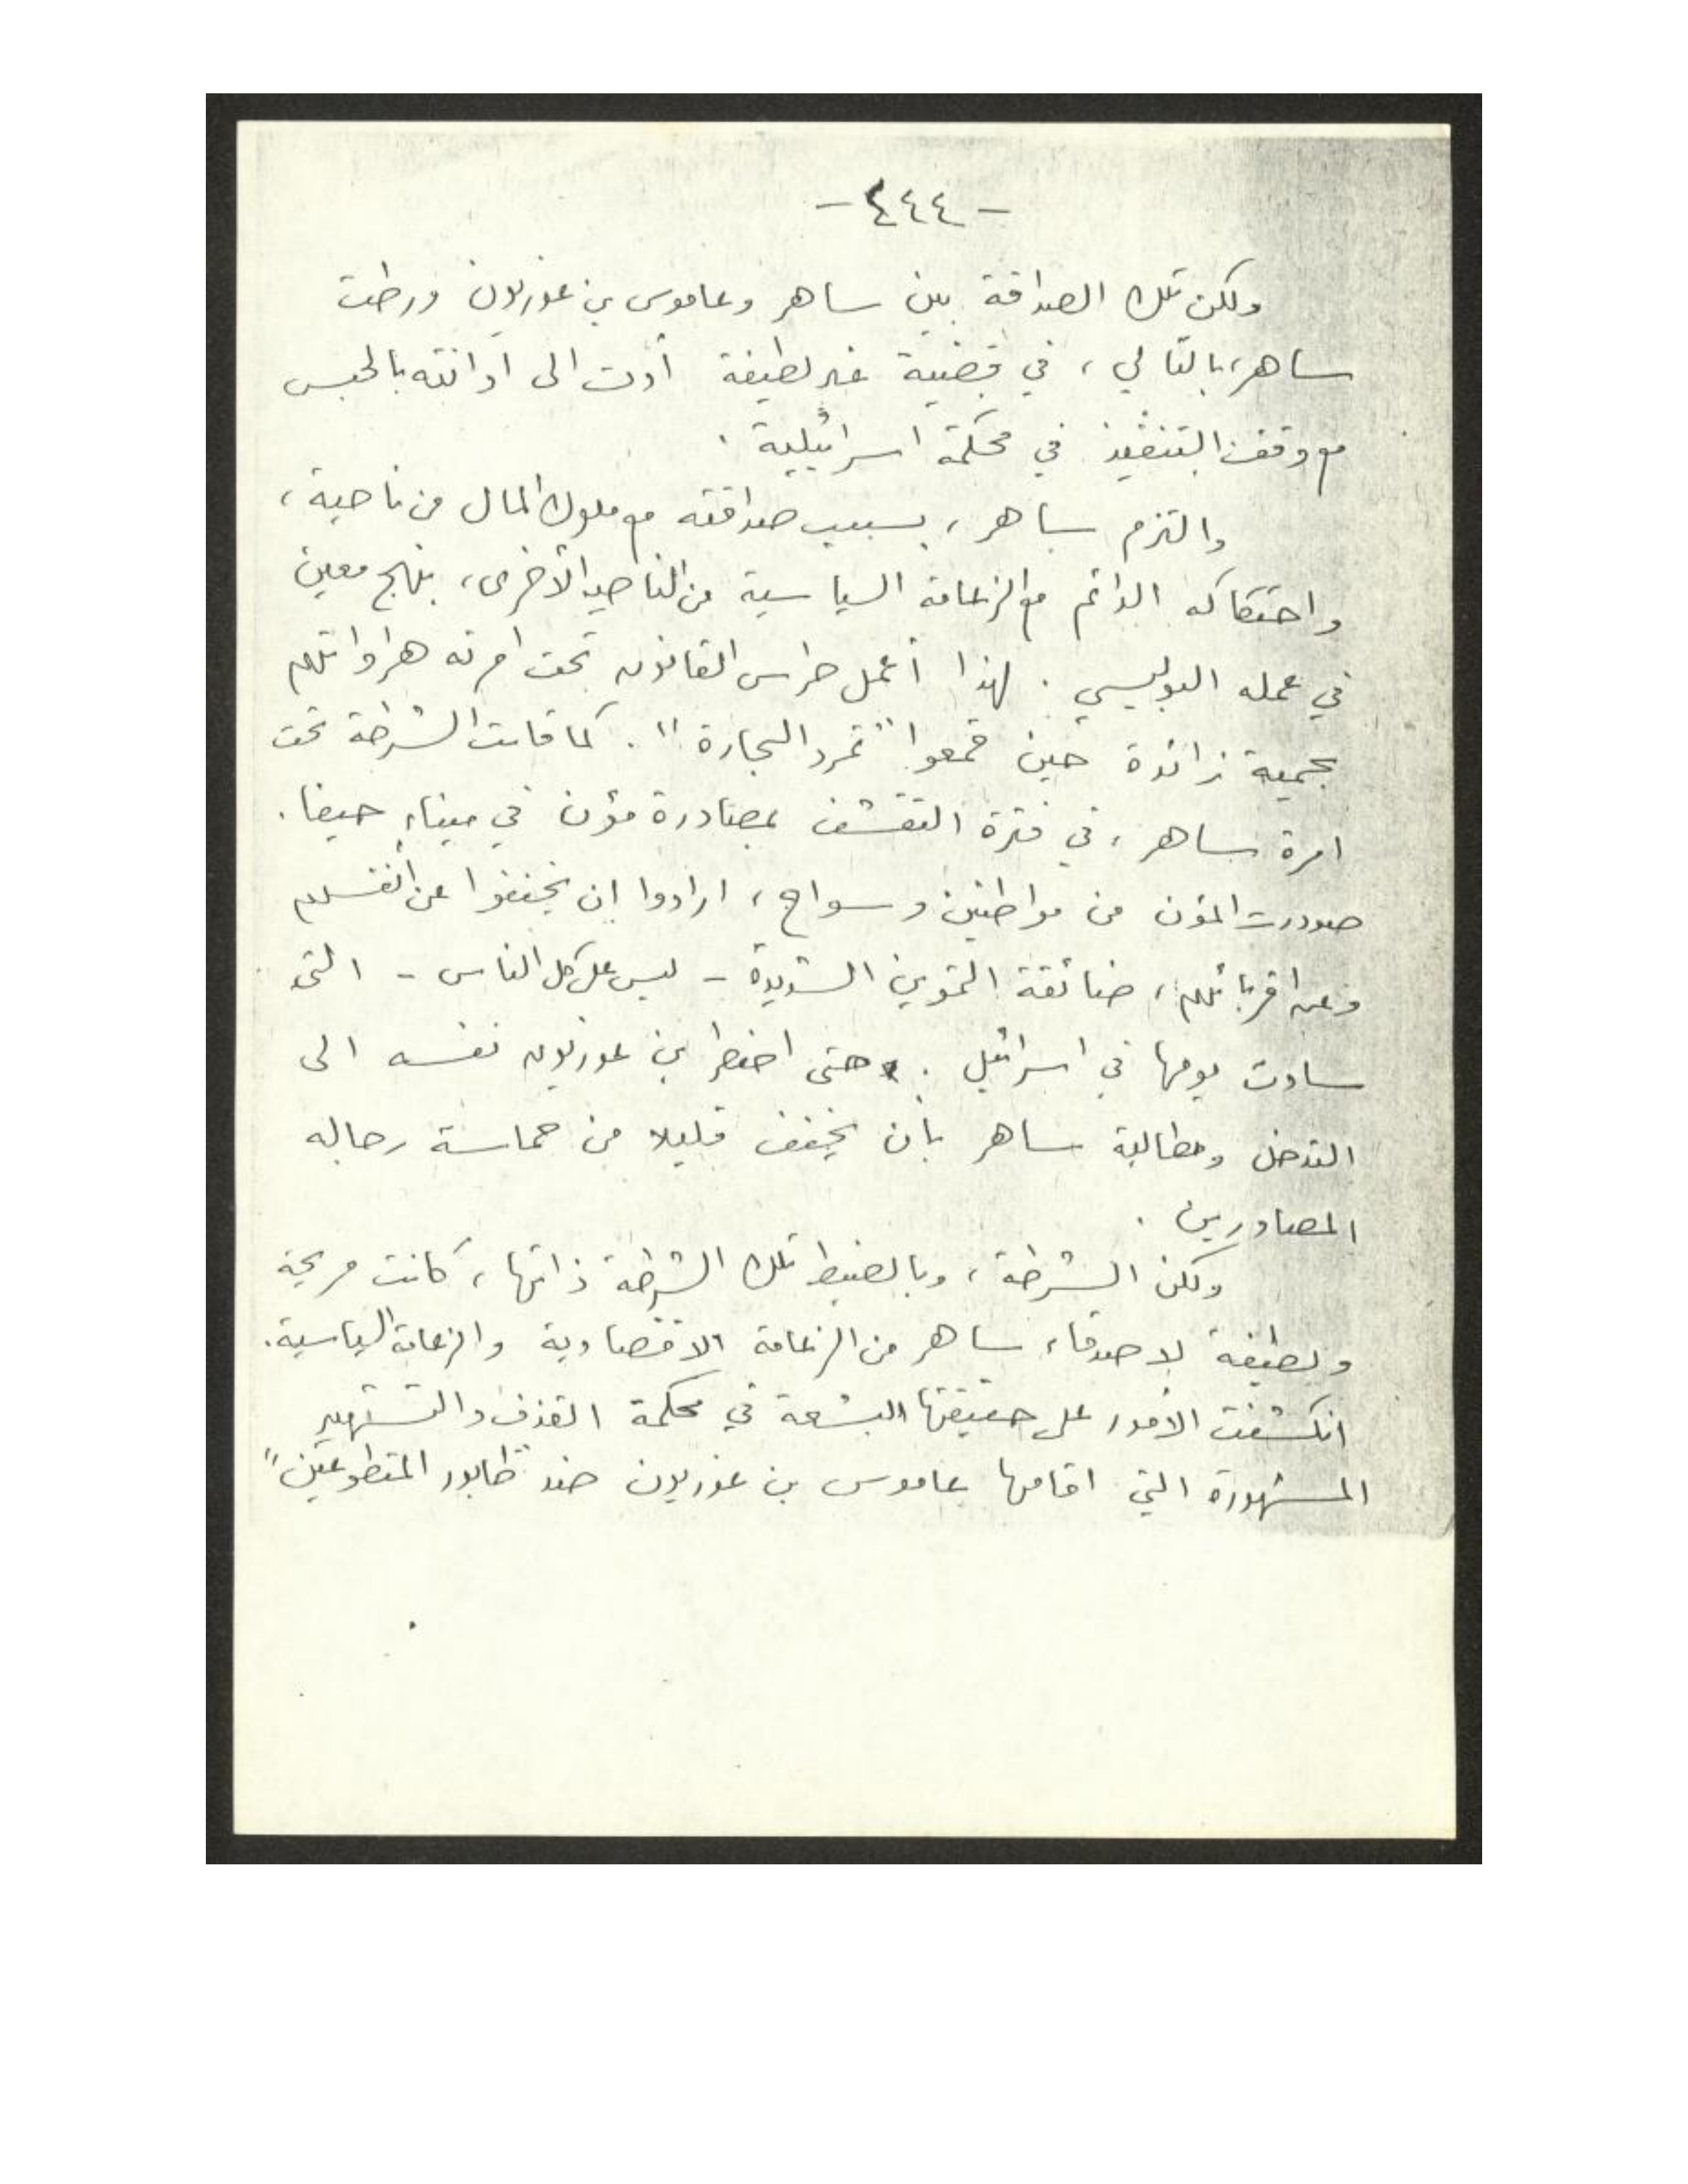 - ٤٤٤ -
ولكن تلك الصداقة بين ساهر وعاموس بن غوريون ورطت
ساهر، بالتالي، في قضية غير لطيفة أدت الى ادانته بالحبس
مع وقف التنفيذ في محكمة اسرائيلية .
والتزم ساهر، بسبب صداقته مع ملوك المال من ناحية،
واحتكاكه الدائم مع الزعامة السياسية من الناحية الأخرى، بنهج معين
في عمله البوليسي . لهذا أعمل حراس القانون تحت امرته هراواتهم
بحمية زائدة حين قمعوا "تمرد البحارة" . كما قامت الشرطة تحت
امرة ساهر، في فترة التقشف بمصادرة مؤن في ميناء حيفا .
صودرت المؤن من مواطنين وسواح، ارادوا ان يخففوا عن أنفسهم
وعن اقربائهم، ضائقة التموين الشديدة - ليس على كل الناس - التي
سادت يومها في اسرائيل . حتى اضطر بن غوريون نفسه الى
التدخل ومطالبة ساهر بأن يخفف قليلا من حماسة رجاله
المصادرين .
ولكن الشرطة، وبالضبط تلك الشرطة ذاتها، كانت مريحة
ولطيفة لاصدقاء ساهر من الزعامة الاقتصادية والزعامة السياسية .
انكشفت الأمور على حقيقتها البشعة في محكمة القذف والتشهير
المشهورة التي اقامها عاموس بن غوريون ضد "طابور المتطوعين"